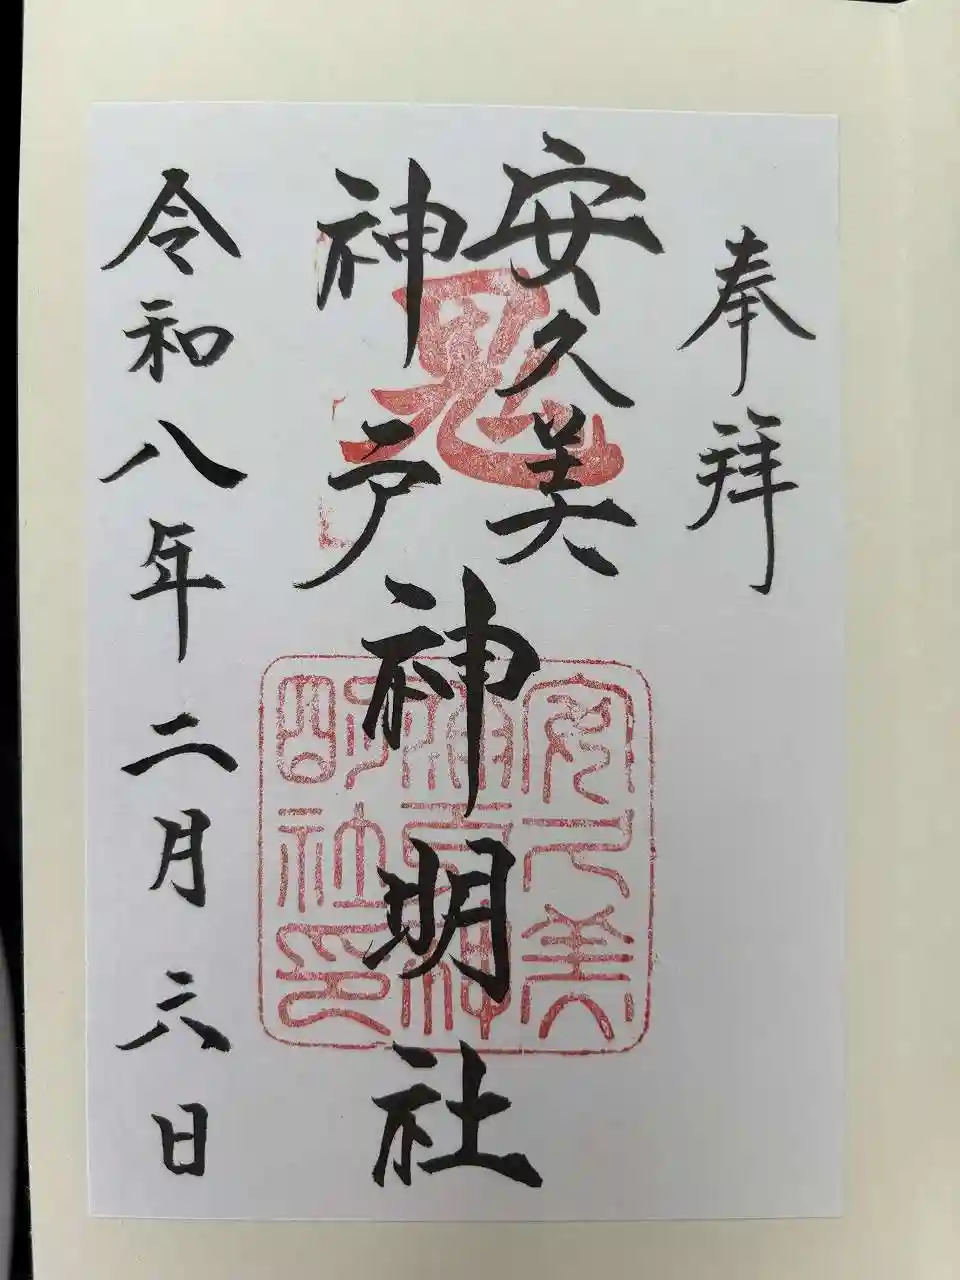 奉拜
安久美
神戸
神明社
令和八年二月六日
鬼
安久美
神戸神
明社印